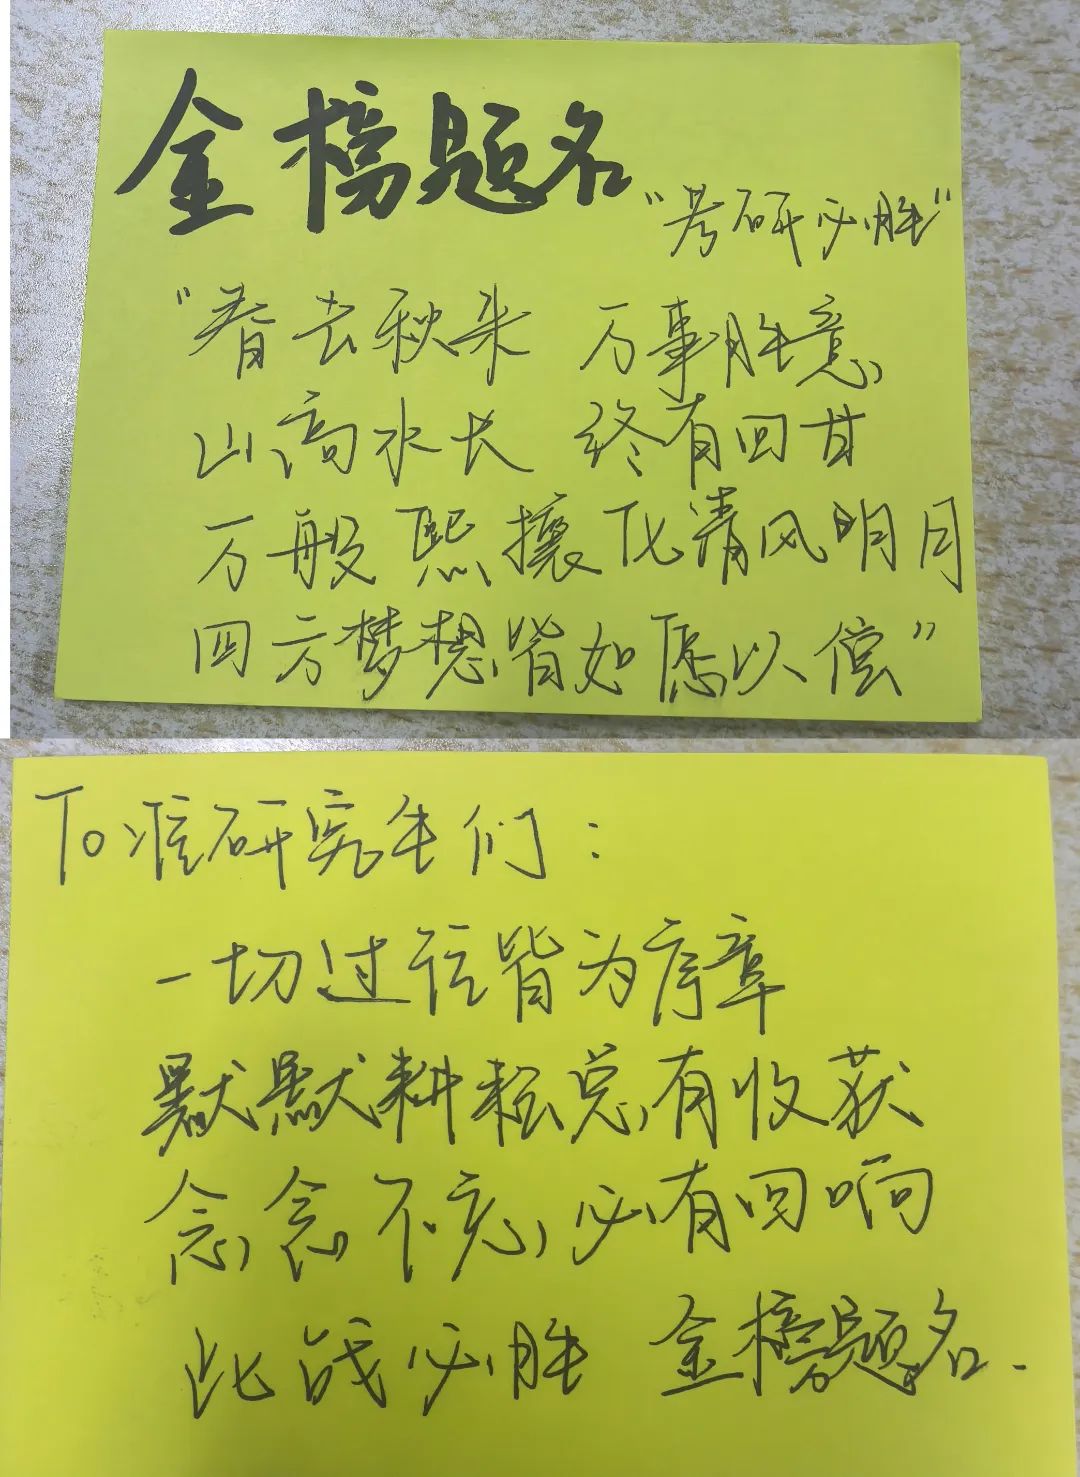 金榜题名
"考研必胜"
"春去秋来 万事胜意
山高水长 终有回甘
万般熙攘化清风明月
四方梦想皆如愿以偿"
To准研究生们:
一切过往皆为序章
默默耕耘总有收获
念念不忘,必有回响
此战必胜 金榜题名.